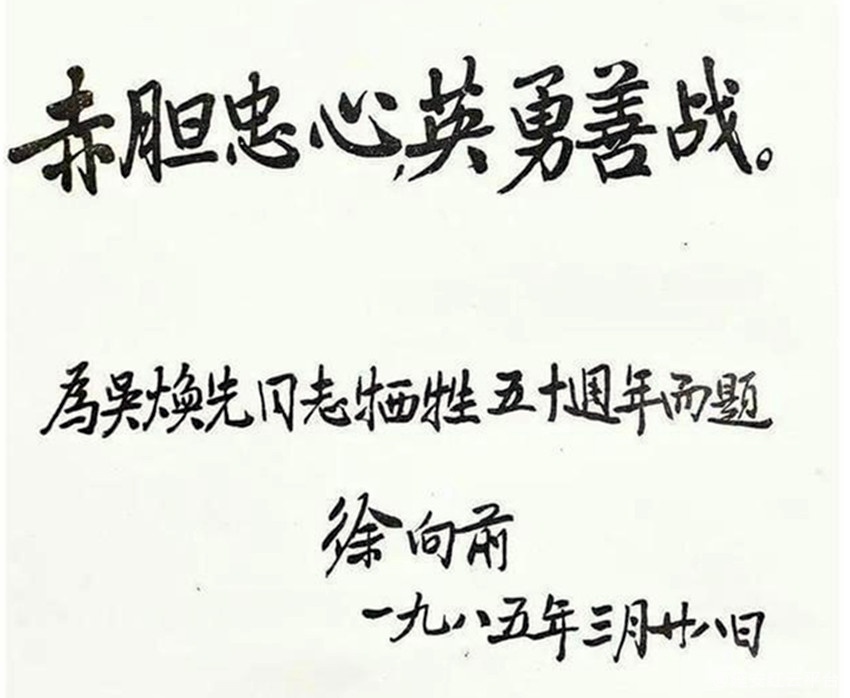 赤胆忠心,英勇善战。
為吳焕先同志牺牲五十週年而题
徐向前
一九八五年三月廿八日